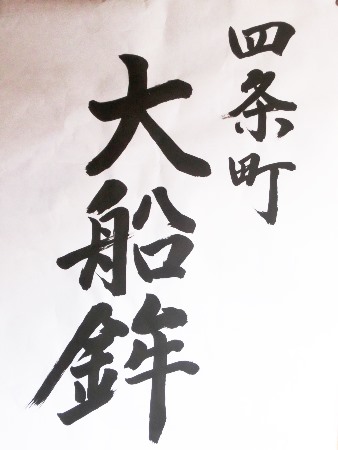 四条町
大船鉾